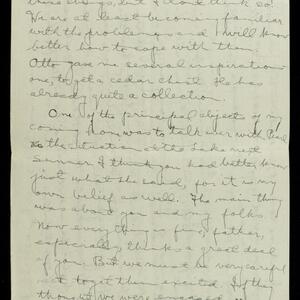 these things, but I don't think so.
We are at least becoming familiar
with the problems and will know
better how to cope with them.
Otto gave me several inspirations
one, to get a cedar chest. He has
already quite a collection.
One of the principal objects of my
coming home was to talk over with
the situation at the Lake next
summer. I think you had better know
just what she said, for it is my
own belief as well. The main thing
was about you and my folks
Now everything is fine, father,
especially thinks a great deal
of you. But we must be very careful
not to get them excited. If they
thought we were engaged